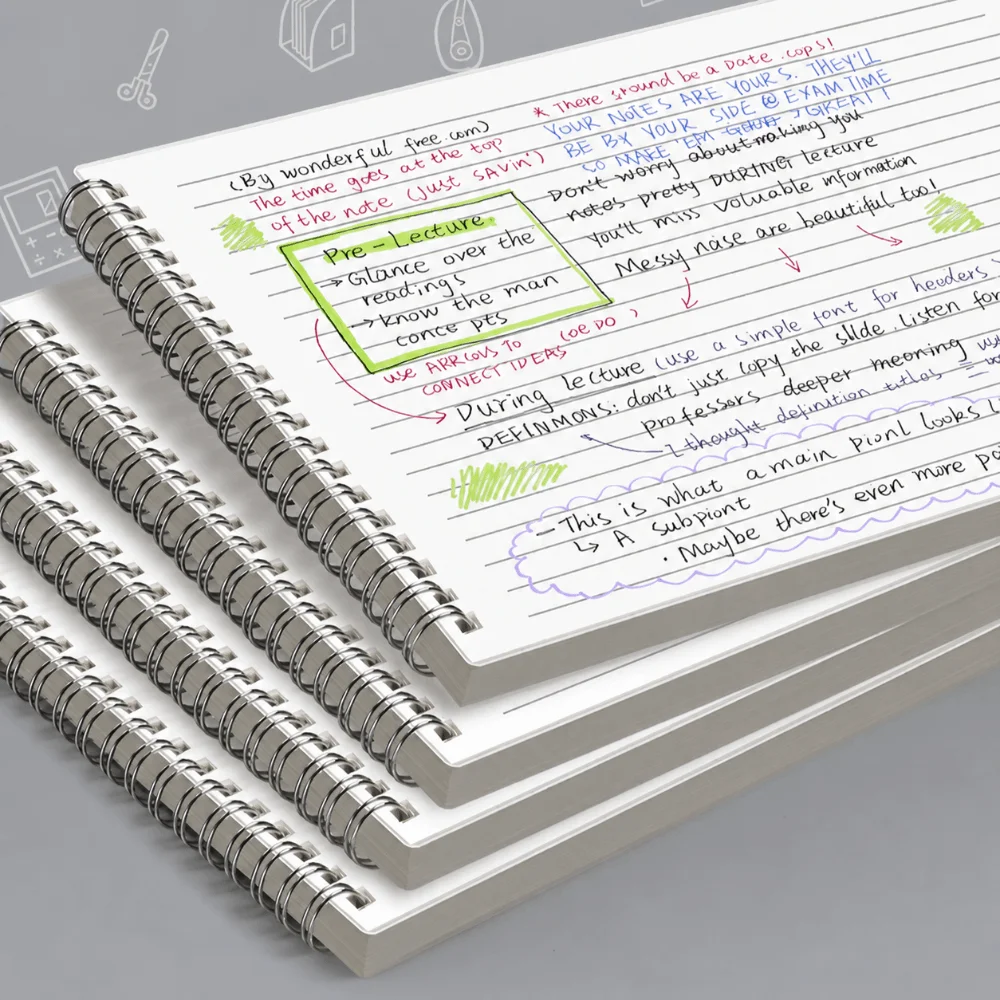 (By wonderful free.com)
The time goes at the top
of the note (just savin')
* There sround be a Date .cops!
YOUR NOTES ARE YOURS. THEY'LL
BE BY YOUR SIDE @ EXAM TIME
SO MAKE 'EM GREAT!
Don't worry about making you
notes pretty DURING lecture
You'll miss valuable information
Messy nase are beautiful too!
Pre - Lecture
→ Glance over the
readings
→ know the man
conce pts
use ARROWS TO (OE DO)
CONNECT IDEAS
During lecture (use a simple font for heeders
DEFINMONS: don't just copy the slide. Listen for
professors deeper meoning
thought definition titles
- This is what a main pionl looks
↳ A subpiont
· Maybe there's even more